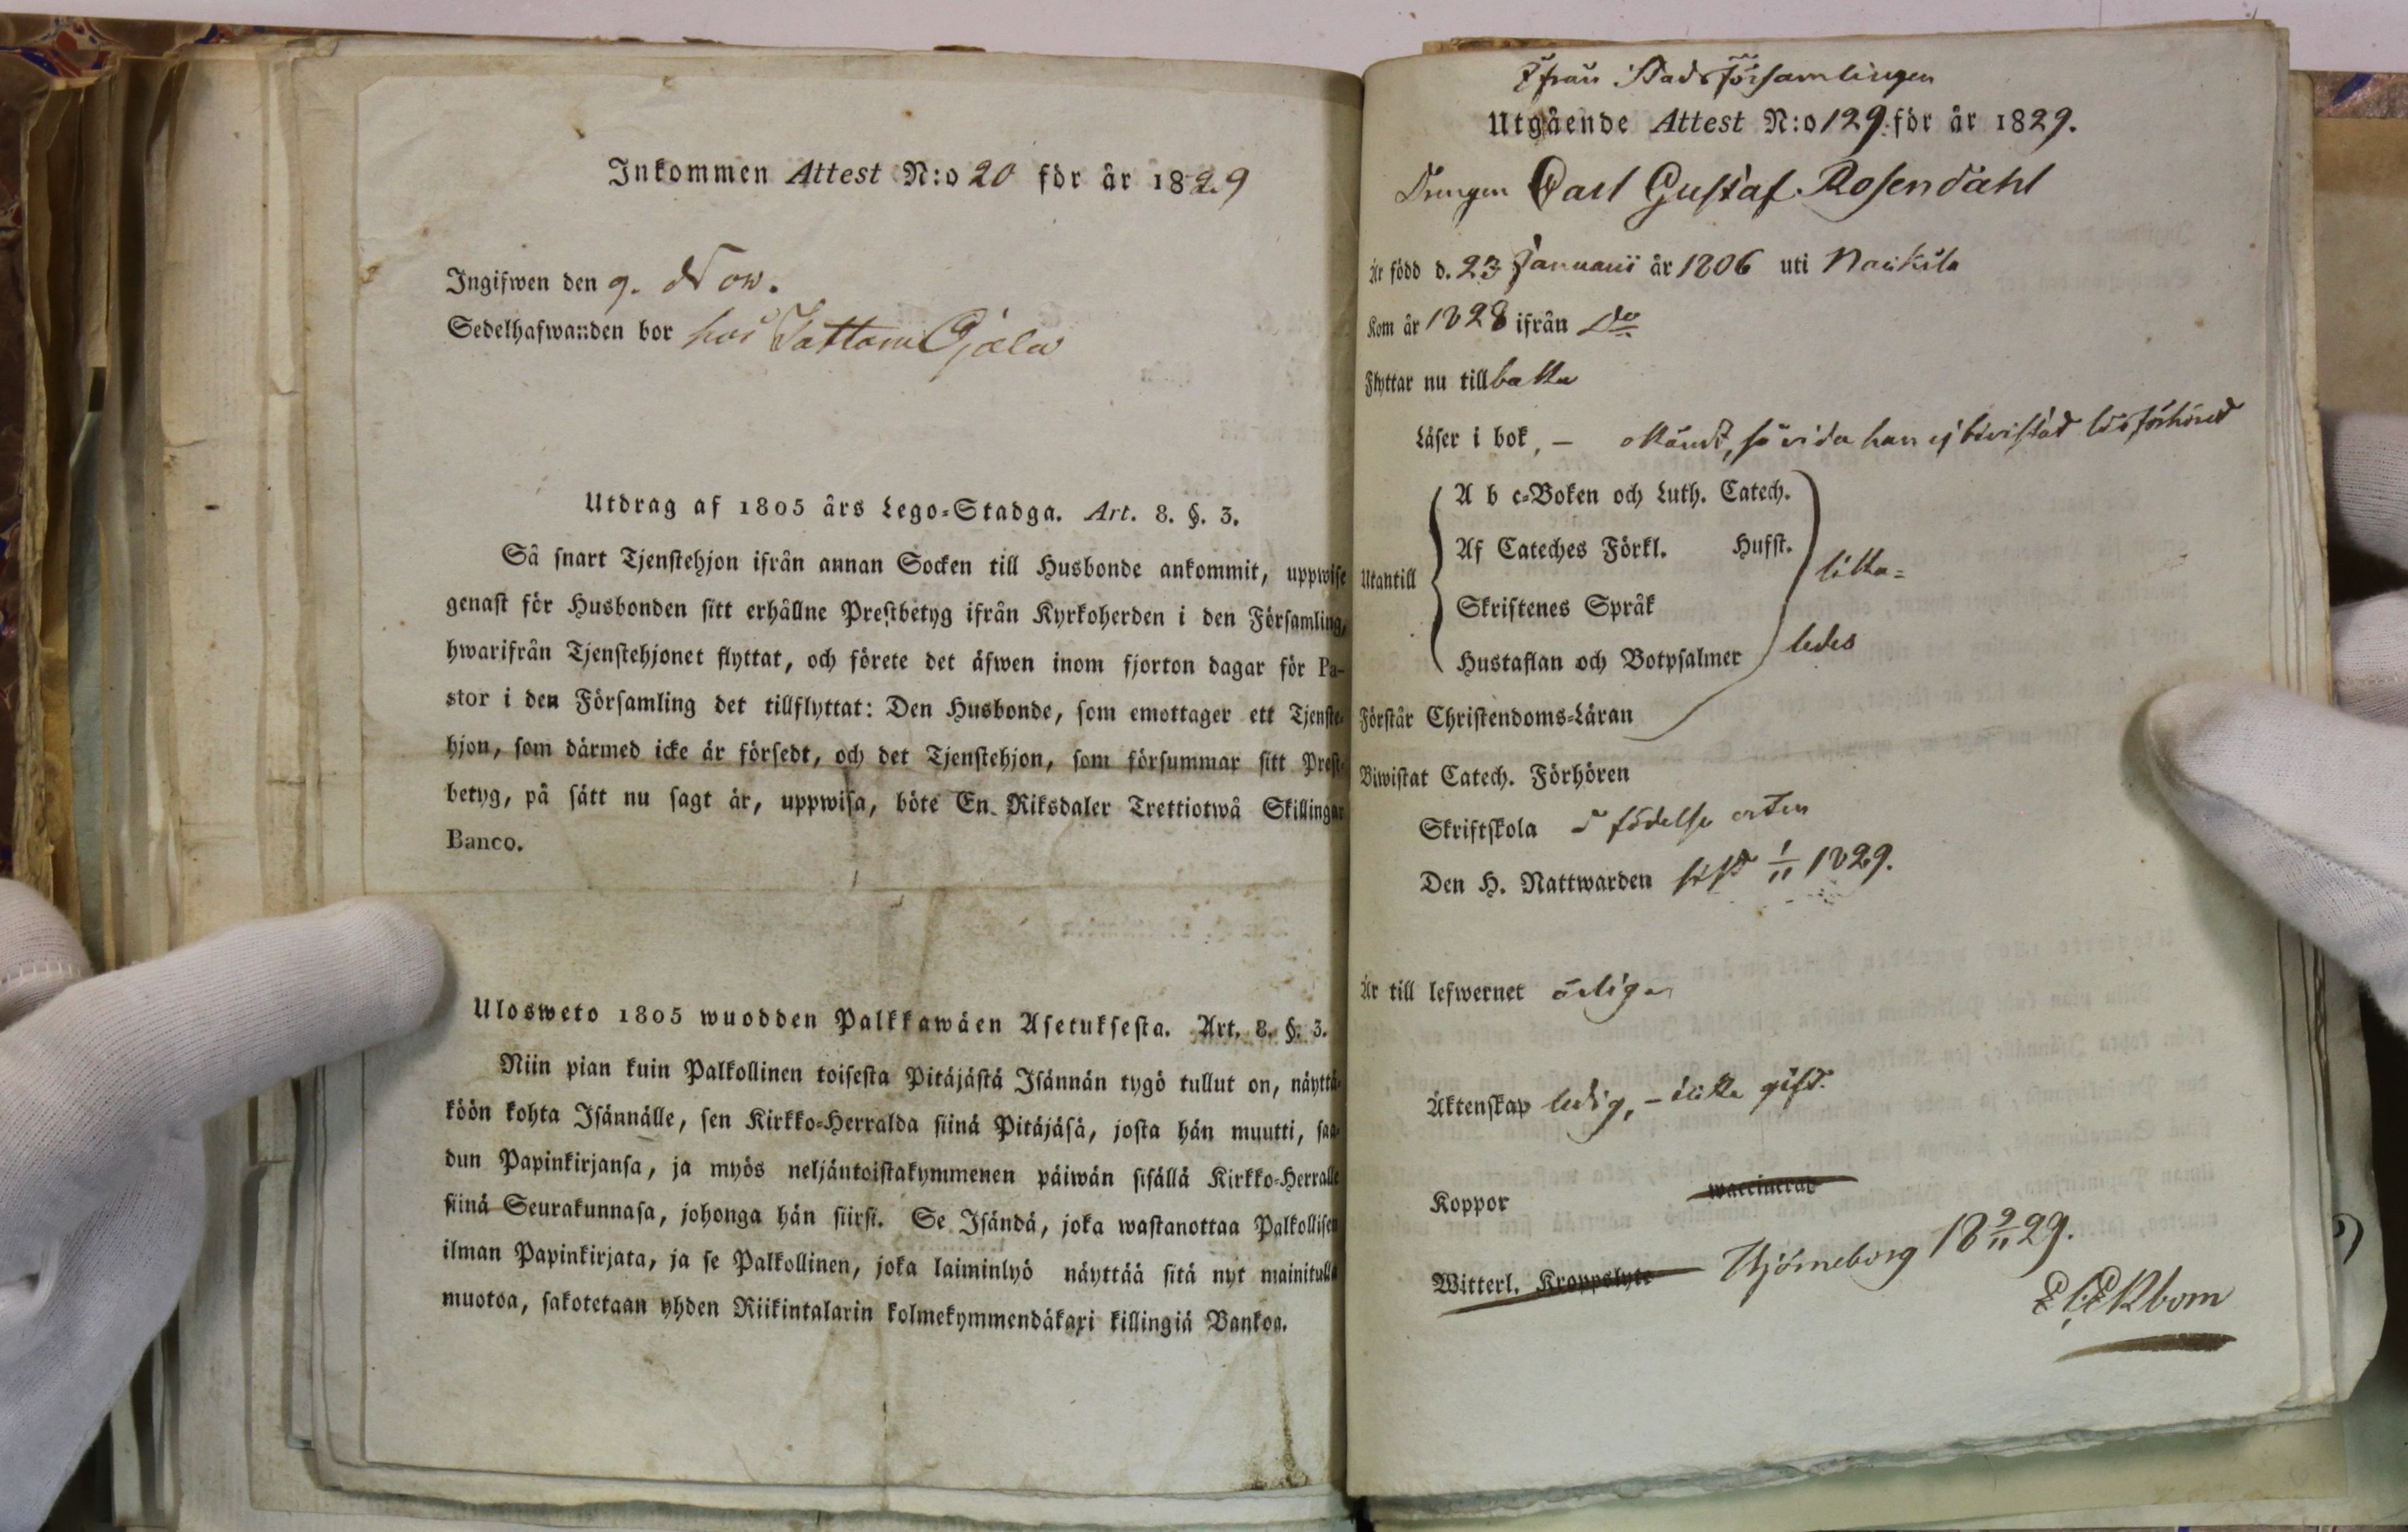 Inkommen Attest N:o 20 för år 1829
Ingifwen den 9. Nov.
Sedelhafwanden bor hos
Utdrag af 1805 års Lego-Stadga. Art. 8. §. 3.
Så snart Tjenstehjon ifrån annan Socken till Husbonde ankommit, uppwise
genast för Husbonden sitt erhållne Prestbetyg ifrån Kyrkoherden i den Församling,
hwarifrån Tjenstehjonet flyttat, och förete det äfwen inom fjorton dagar för Pa-
stor i den Församling det tillflyttat: Den Husbonde, som emottager ett Tjenste-
hjon, som därmed icke är försedt, och det Tjenstehjon, som försummar sitt Prest-
betyg, på sätt nu sagt är, uppwisa, böte En Riksdaler Trettiotwå Skillingar
Banco.
Ulosweto 1805 wuodden Palkkawäen Asetuksesta. Art. 8. §. 3.
Niin pian kuin Palkollinen toisesta Pitäjästä Isännän tygö tullut on, näyttä-
köön kohta Isännälle, sen Kirkko-Herralda siinä Pitäjäsä, josta hän muutti, saa-
dun Papinkirjansa, ja myös neljäntoistakymmenen päiwän sisällä Kirkko-Herralle
siinä Seurakunnasa, johonga hän siirsi. Se Isändä, joka wastanottaa Palkollisen
ilman Papinkirjata, ja se Palkollinen, joka laiminlyö näyttää sitä nyt mainitulla
muotoa, sakotetaan yhden Riikintalarin kolmekymmendäkaxi killingiä Bankoa.
Ifrån Stadsförsamlingen
Utgående Attest N:o 129. för år 1829.
Drengen Carl Gustaf Rosendahl
Är född d. 23 Januarii år 1806 uti Nakkila
Kom år 1828 ifrån Do
Flyttar nu tillbaka
Läser i bok, – okändt, så vida han ej bivistat läsförhöret
A b c-Boken och Luth. Catech.
Af Cateches Förkl. Hufst.
Utantill lika-
Skriftenes Språk
Hustaflan och Botpsalmer ledes
Förstår Christendoms-Läran
Biwistat Catech. Förhören
Skriftskola i födelse orten
Den H. Nattwarden sist 1/11 1829.
Är till lefwernet ärlig
Äktenskap ledig, – icke gift.
Koppor waccinerad
Witterl. Kroppslyte Björneborg 18 9/11 29.
Ekbom